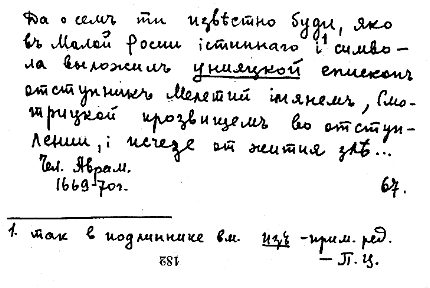 Да о семъ ти извѣстно буди, яко
въ Малой Росии істиннаго і¹ симво-
ла выложилъ унияцкой епископъ
отступникъ Мелетий імянемъ, Смо-
трицкой прозвищемъ во отступ-
лении, і исчезе от жития злѣ...
Чел. Аврам.
1669-70г. 67.
1. так в подлиннике вм. изъ -прим. ред.
— П. Ц.
182